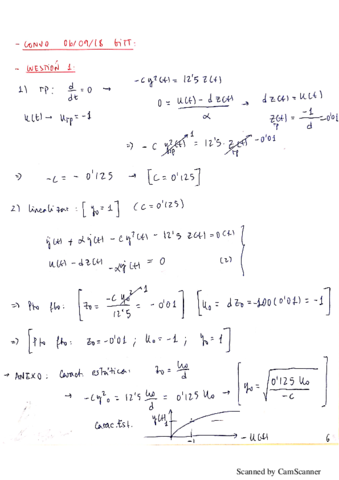 - CONVO 06/09/18 GITI:
- CUESTIÓN 1:
1) RP: d/dt = 0 → -c y²(t) = 12'5 z(t)
u(t) → u_rp = -1
0 = (u(t) - d z(t))/α → d z(t) = u(t)
z(t)_rp = -1/d = -0'01
⇒ -c y²(t)_rp^1 = 12'5 · z(t)_rp^-0'01
⇒ -c = -0'125 → [c = 0'125]
2) linealizar: [y₀ = 1] (c = 0'125)
ÿ(t) + α ẏ(t) - c y²(t) - 12'5 z(t) = 0 (1)
u(t) - d z(t) - αẏ(t) = 0 (2)
⇒ Pto fto: [z₀ = -c y₀²^1 / 12'5 = -0'01] [u₀ = d z₀ = -100(0'01) = -1]
⇒ [Pto fto: z₀ = -0'01 ; u₀ = -1 ; y₀ = 1]
→ ANEXO: Caract. estática: z₀ = u₀/d
→ -c y₀² = 12'5 u₀/d = 0'125 u₀ → [y₀ = √(0'125 u₀ / -c)]
Carac. Est.
y(t)
1
-1
- u(t)
6
Scanned by CamScanner